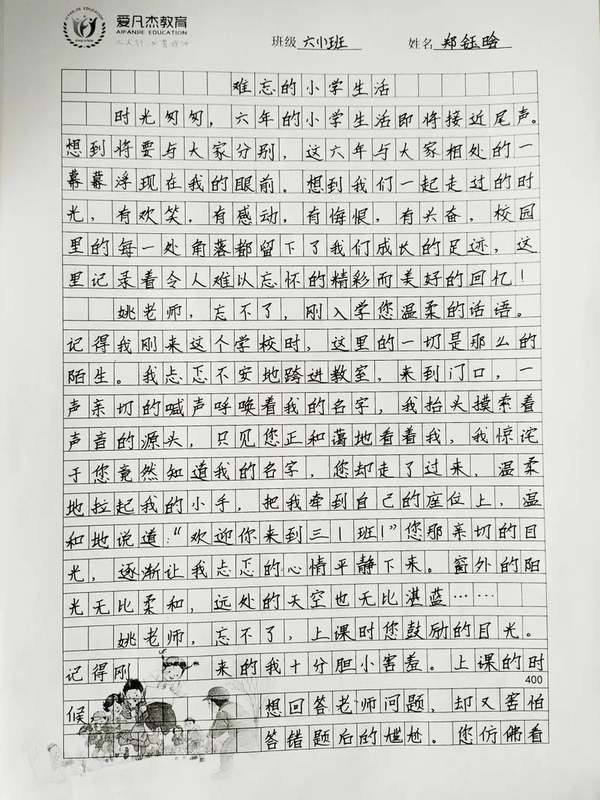 爱凡杰教育
AIFANJIE EDUCATION
班级 六小班 姓名 郑钰晗
难忘的小学生活
时光匆匆，六年的小学生活即将接近尾声。
想到将要与大家分别，这六年与大家相处的一
幕幕浮现在我的眼前。想到我们一起走过的时
光，有欢笑，有感动，有悔恨，有兴奋，校园
里的每一处角落都留下了我们成长的足迹，这
里记录着令人难以忘怀的精彩而美好的回忆！
姚老师，忘不了，刚入学您温柔的话语。
记得我刚来这个学校时，这里的一切是那么的
陌生。我忐忑不安地跨进教室，来到门口，一
声亲切的喊声呼唤着我的名字，我抬头摸索着
声音的源头，只见您正和蔼地看着我，我惊诧
于您竟然知道我的名字，您却走了过来，温柔
地拉起我的小手，把我牵到自己的座位上，温
和地说道：“欢迎你来到三1班！”您那亲切的目
光，逐渐让我忐忑的心情平静下来。窗外的阳
光无比柔和，远处的天空也无比湛蓝……
姚老师，忘不了，上课时您鼓励的目光。
记得刚来的我十分胆小害羞。上课的时
400
候想回答老师问题，却又害怕
答错题后的尴尬。您仿佛看